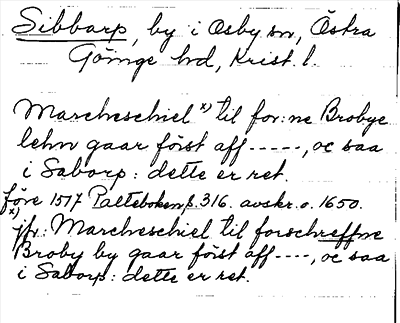 Sibbarp, by i Osby sn, Östra
Göinge hd, Krist. l.
Marcheschiel x) til for:ne Brobye
lehn gaar först aff -----, oc saa
i Saborp: dette er ret.
före 1517 Palteboken p. 316. avskr. o. 1650.
x) jfr: Marcheschiel til forschreffne
Broby by gaar först aff ----, oc saa
i Saborp: dette er ret.